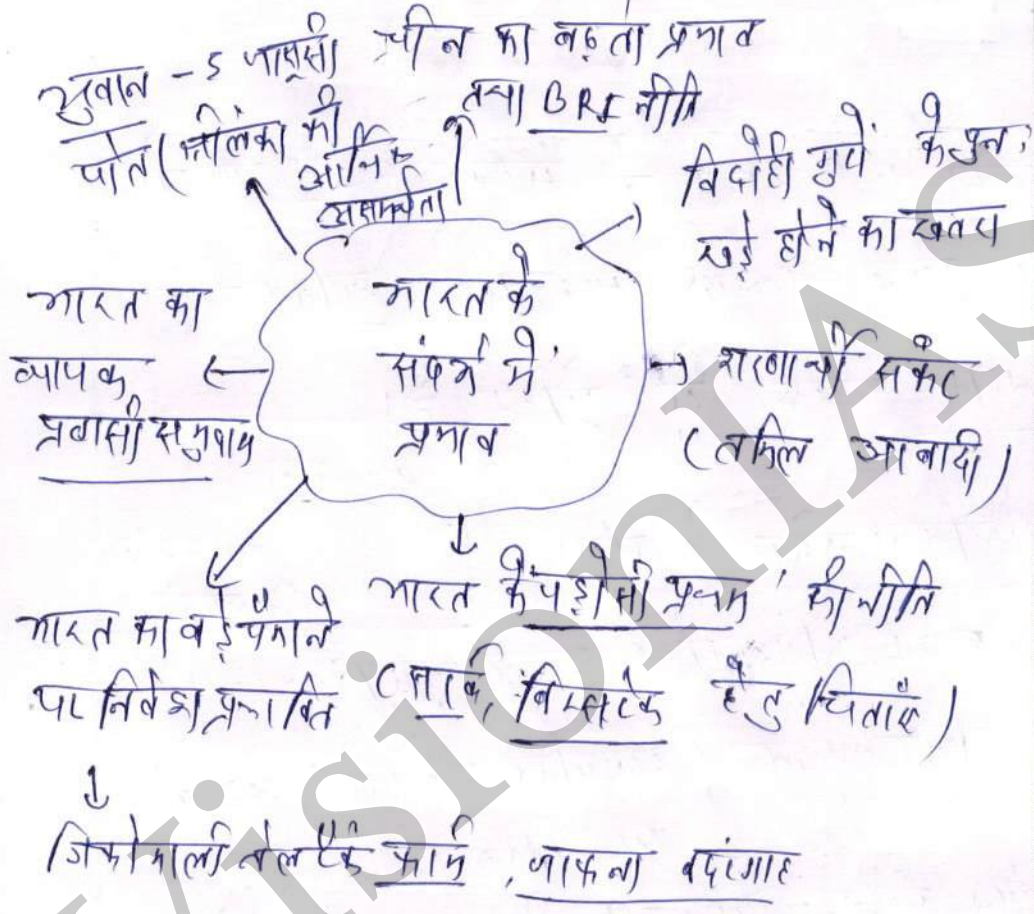 युवान - 5 जासूसी
पोत (श्रीलंका की
आर्थिक
असमर्थता
चीन का बढ़ता प्रभाव
तथा BRI नीति
विद्रोही गुटों के पुनः
खड़े होने का खतरा
भारत का
व्यापक
प्रवासी समुदाय
भारत के
संदर्भ में
प्रभाव
शरणार्थी संकट
(तमिल आबादी)
भारत का बड़े पैमाने
पर निवेश प्रभावित
भारत के 'पड़ोसी प्रथम' की नीति
(सार्क, बिम्सटेक हेतु चिंताएँ)
त्रिंकोमाली तेल टैंक फार्म, जाफना बंदरगाह
VisionIAS